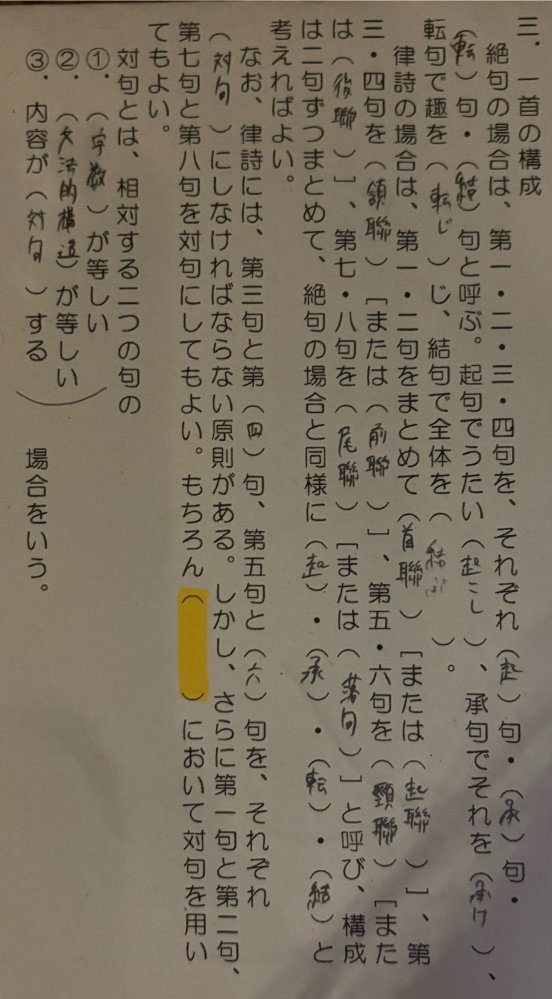 三．一首の構成
絶句の場合は、第一・二・三・四句を、それぞれ（起）句・（承）句・
（転）句・（結）句と呼ぶ。起句でうたい（起こし）、承句でそれを（承け）、
転句で趣を（転じ）じ、結句で全体を（結ぶ）。
律詩の場合は、第一・二句をまとめて（首聯）［または（起聯）］、第
三・四句を（頷聯）［または（前聯）］、第五・六句を（頸聯）［また
は（後聯）］、第七・八句を（尾聯）［または（落句）］と呼び、構成
は二句ずつまとめて、絶句の場合と同様に（起）・（承）・（転）・（結）と
考えればよい。
なお、律詩には、第三句と第（四）句、第五句と（六）句を、それぞれ
（対句）にしなければならない原則がある。しかし、さらに第一句と第二句、
第七句と第八句を対句にしてもよい。もちろん（　　　）において対句を用い
てもよい。
対句とは、相対する二つの句の
①．（字数）が等しい
②．（文法的構造）が等しい
③．内容が（対句）する
場合をいう。